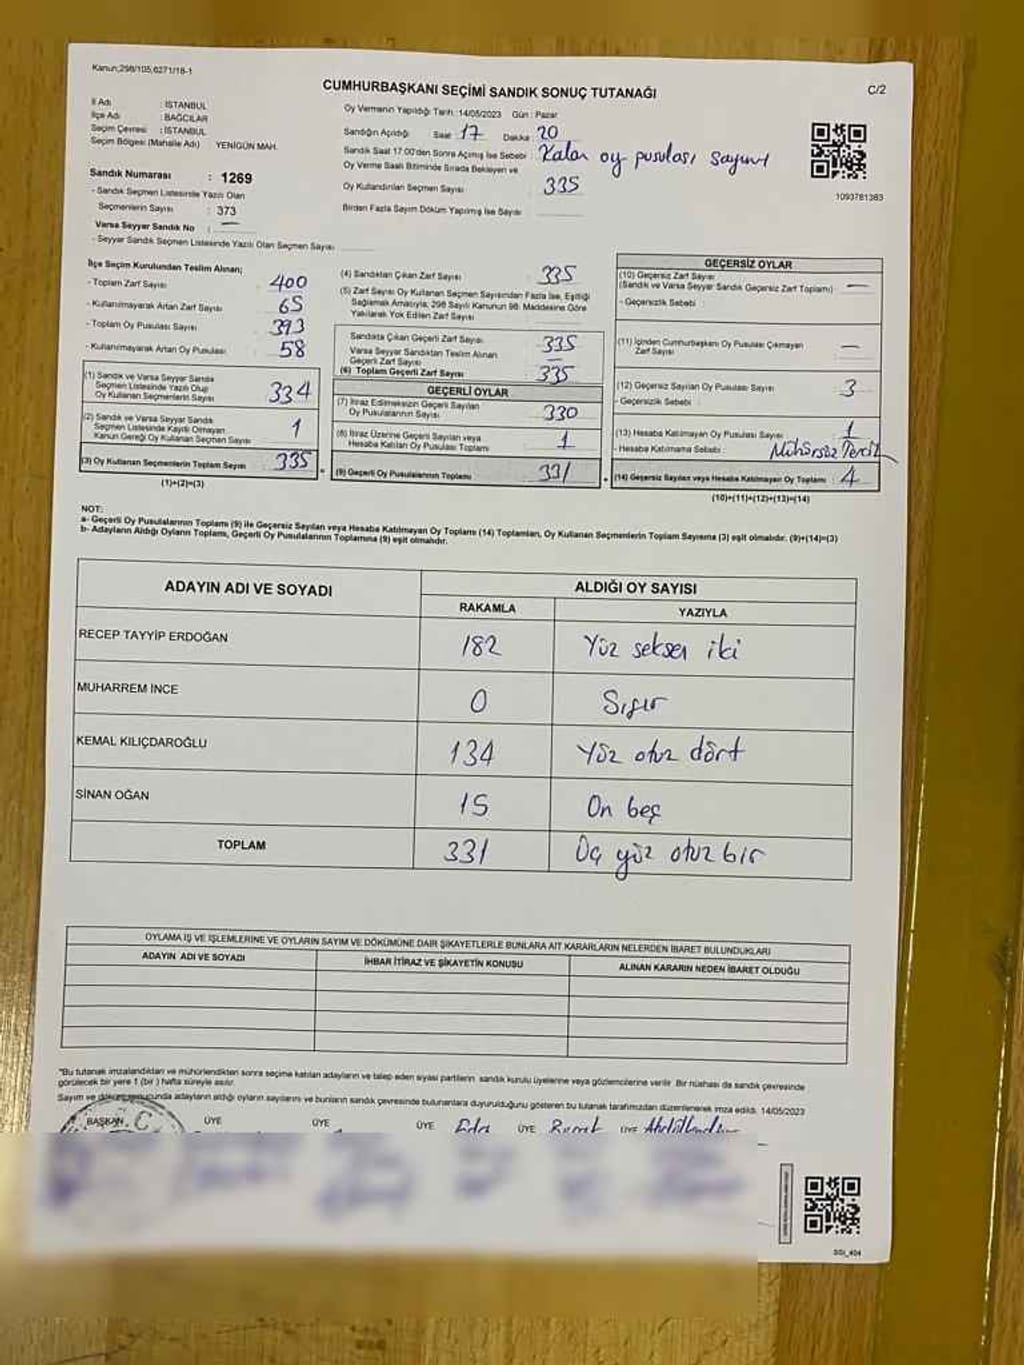 Kanun;298/105,6271/18-1
CUMHURBAŞKANI SEÇİMİ SANDIK SONUÇ TUTANAĞI
C/2
İl Adı : İSTANBUL
İlçe Adı : BAĞCILAR
Seçim Çevresi : İSTANBUL
Seçim Bölgesi (Mahalle Adı) YENİGÜN MAH.
Sandık Numarası : 1269
- Sandık Seçmen Listesinde Yazılı Olan
Seçmenlerin Sayısı : 373
Varsa Seyyar Sandık No : —
- Seyyar Sandık Seçmen Listesinde Yazılı Olan Seçmen Sayısı
Oy Vermenin Yapıldığı Tarih :14/05/2023 Gün : Pazar
Sandığın Açıldığı Saat : 17 Dakika : 20
Sandık Saat 17.00'den Sonra Açılmış İse Sebebi : Kalan oy pusulası sayımı
Oy Verme Saati Bitiminde Sırada Bekleyen ve
Oy Kullandırılan Seçmen Sayısı 335
Birden Fazla Sayım Döküm Yapılmış İse Sayısı
1093781383
İlçe Seçim Kurulundan Teslim Alınan;
- Toplam Zarf Sayısı : 400
- Kullanılmayarak Artan Zarf Sayısı : 65
- Toplam Oy Pusulası Sayısı : 393
- Kullanılmayarak Artan Oy Pusulası : 58
(1) Sandık ve Varsa Seyyar Sandık
Seçmen Listesinde Yazılı Olup
Oy Kullanan Seçmenlerin Sayısı 334
(2) Sandık ve Varsa Seyyar Sandık
Seçmen Listesinde Kayıtlı Olmayan
Kanun Gereği Oy Kullanan Seçmen Sayısı 1
(3) Oy Kullanan Seçmenlerin Toplam Sayısı 335
(1)+(2)=(3)
(4) Sandıktan Çıkan Zarf Sayısı 335
(5) Zarf Sayısı Oy Kullanan Seçmen Sayısından Fazla İse, Eşitliği
Sağlamak Amacıyla, 298 Sayılı Kanunun 98. Maddesine Göre
Yakılarak Yok Edilen Zarf Sayısı
Sandıkta Çıkan Geçerli Zarf Sayısı 335
Varsa Seyyar Sandıktan Teslim Alınan
Geçerli Zarf Sayısı —
(6) Toplam Geçerli Zarf Sayısı 335
GEÇERLİ OYLAR
(7) İtiraz Edilmeksizin Geçerli Sayılan
Oy Pusulalarının Sayısı 330
(8) İtiraz Üzerine Geçerli Sayılan veya
Hesaba Katılan Oy Pusulası Toplamı 1
(9) Geçerli Oy Pusulalarının Toplamı 331
GEÇERSİZ OYLAR
(10) Geçersiz Zarf Sayısı
(Sandık ve Varsa Seyyar Sandık Geçersiz Zarf Toplamı) —
- Geçersizlik Sebebi :
(11) İçinden Cumhurbaşkanı Oy Pusulası Çıkmayan
Zarf Sayısı —
(12) Geçersiz Sayılan Oy Pusulası Sayısı 3
- Geçersizlik Sebebi :
(13) Hesaba Katılmayan Oy Pusulası Sayısı 1
- Hesaba Katılmama Sebebi : Mühürsüz Tercih
(14) Geçersiz Sayılan veya Hesaba Katılmayan Oy Toplamı : 4
(10)+(11)+(12)+(13)=(14)
NOT:
a- Geçerli Oy Pusulalarının Toplamı (9) ile Geçersiz Sayılan veya Hesaba Katılmayan Oy Toplamı (14) Toplamları, Oy Kullanan Seçmenlerin Toplam Sayısına (3) eşit olmalıdır. (9)+(14)=(3)
b- Adayların Aldığı Oyların Toplamı, Geçerli Oy Pusulalarının Toplamına (9) eşit olmalıdır.
ADAYIN ADI VE SOYADI ALDIĞI OY SAYISI
RAKAMLA YAZIYLA
RECEP TAYYİP ERDOĞAN 182 Yüz seksen iki
MUHARREM İNCE 0 Sıfır
KEMAL KILIÇDAROĞLU 134 Yüz otuz dört
SİNAN OĞAN 15 On beş
TOPLAM 331 Üç yüz otuz bir
OYLAMA İŞ VE İŞLEMLERİNE VE OYLARIN SAYIM VE DÖKÜMÜNE DAİR ŞİKAYETLERLE BUNLARA AİT KARARLARIN NELERDEN İBARET BULUNDUKLARI
ADAYIN ADI VE SOYADI İHBAR İTİRAZ VE ŞİKAYETİN KONUSU ALINAN KARARIN NEDEN İBARET OLDUĞU
"Bu tutanak imzalandıktan ve mühürlendikten sonra seçime katılan adayların ve talep eden siyasi partilerin sandık kurulu üyelerine veya gözlemcilerine verilir. Bir nüshası da sandık çevresinde
görülecek bir yere 1 (bir) hafta süreyle asılır.
Sayım ve döküm sonucunda adayların aldığı oyların sayılarını ve bunların sandık çevresinde bulunanlara duyurulduğunu gösteren bu tutanak tarafımızdan düzenlenerek imza edildi. 14/05/2023
BAŞKAN ÜYE ÜYE ÜYE ÜYE ÜYE